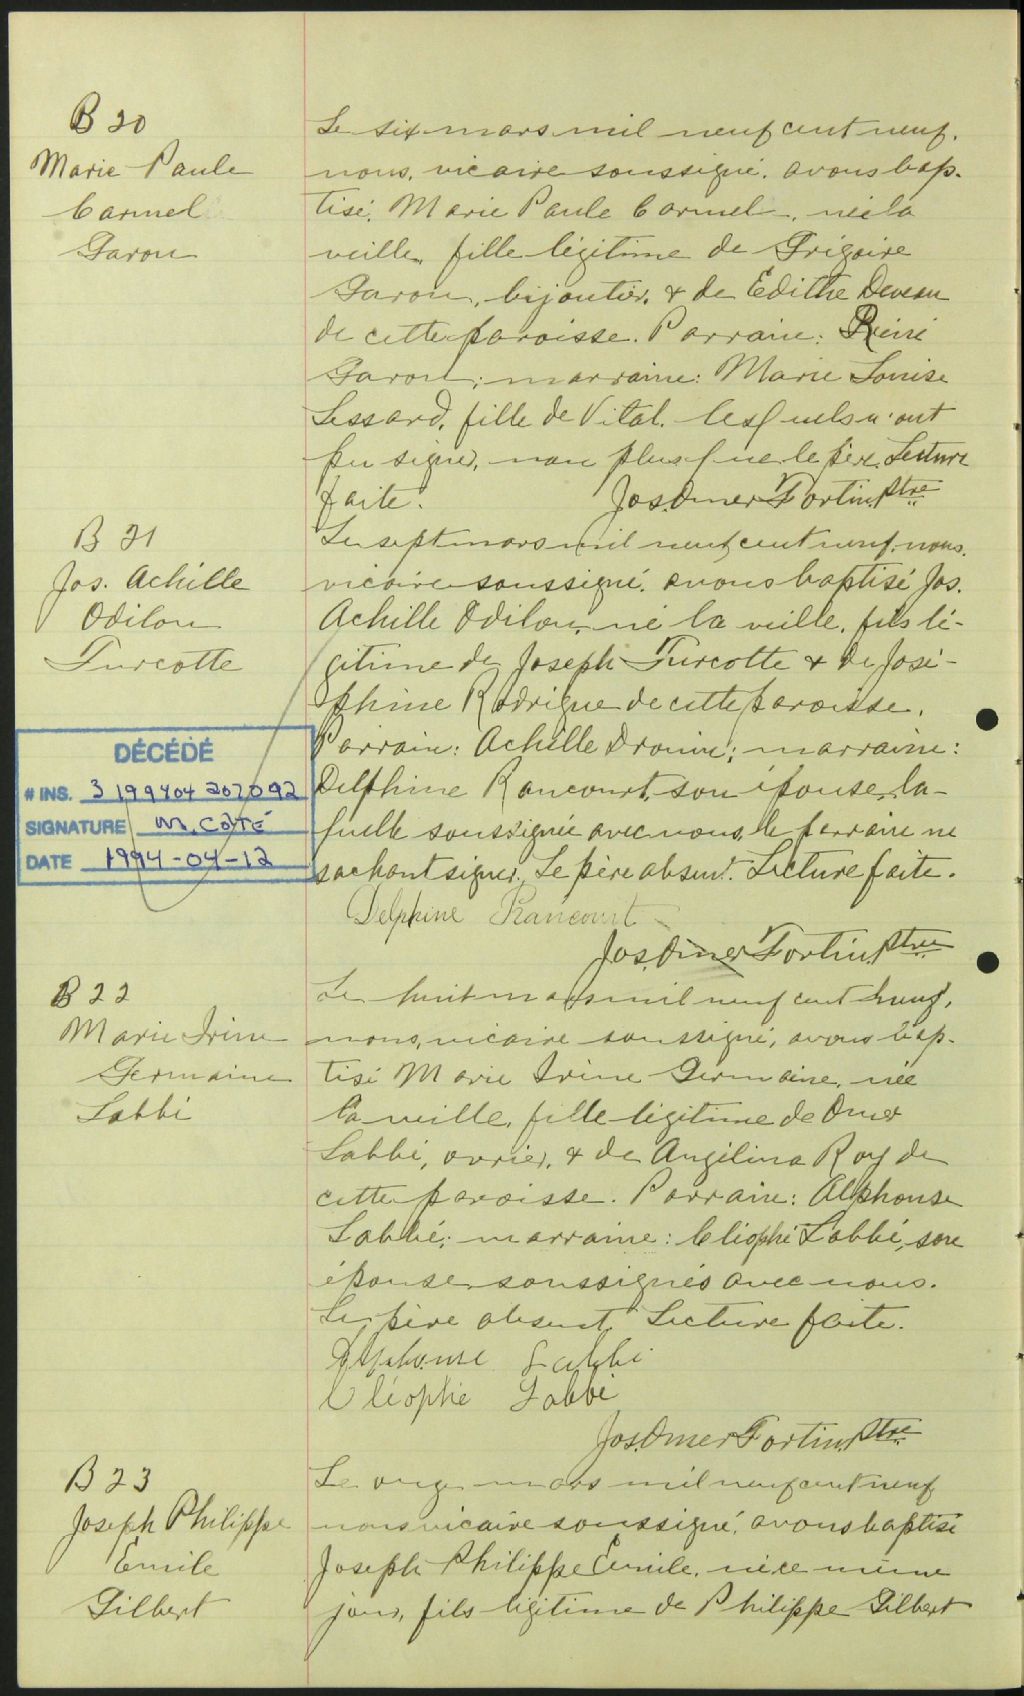 B 20
Marie Paule
Carmel
Garon
Le six mars mil neuf cent neuf,
nous, vicaire soussigné, avons bap-
tisé, Marie Paule Carmel, née la
veille, fille légitime de Grégoire
Garon, bijoutier, & de Edithe Deveau
de cette paroisse. Parrain: Réné
Garon; marraine: Marie Louise
Lessard, fille de Vital, lesquels n'ont
pu signer, non plus que le père. Lecture
faite.
Jos. Omer Fortin Ptre
B 21
Jos. Achille
Odilon
Turcotte
Le sept mars mil neuf cent neuf, nous,
vicaire soussigné, avons baptisé Jos.
Achille Odilon, né la veille, fils lé-
gitime de Joseph Turcotte & de José-
phine Rodrigue de cette paroisse.
Parrain: Achille Drouin; marraine:
Delphine Rancourt, son épouse, la-
quelle soussignée avec nous, le parrain ne
sachant signer. Le père absent. Lecture faite.
Delphine Rancourt
Jos. Omer Fortin Ptre
DÉCÉDÉ
# INS. 3 199404 207092
SIGNATURE M. CÔTÉ
DATE 1994-04-12
B 22
Marie Irène
Germaine
Labbé
Le huit mars mil neuf cent neuf,
nous, vicaire soussigné, avons bap-
tisé Marie Irène Germaine, née
la veille, fille légitime de Omer
Labbé, ovrier, & de Angélina Roy de
cette paroisse. Parrain: Alphonse
Labbé; marraine: Cléophé Labbé, son
épouse, soussignés avec nous.
Le père absent. Lecture faite.
Alphonse Labbé
Cléophé Labbé
Jos. Omer Fortin Ptre
B 23
Joseph Philippe
Emile
Gilbert
Le onze mars mil neuf cent neuf
nous vicaire soussigné, avons baptisé
Joseph Philippe Emile, né ce même
jour, fils légitime de Philippe Gilbert